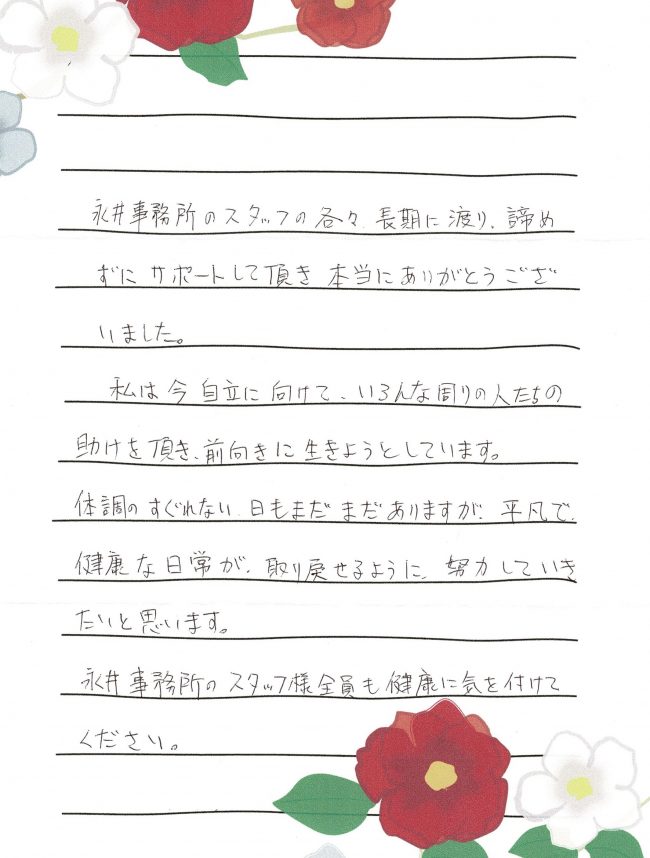 永井事務所のスタッフの各々、長期に渡り、諦め
ずにサポートして頂き本当にありがとうござ
いました。
私は今自立に向けて、いろんな周りの人たちの
助けを頂き、前向きに生きようとしています。
体調のすぐれない日もまだまだありますが、平凡で、
健康な日常が、取り戻せるように、努力していき
たいと思います。
永井事務所のスタッフ様全員も健康に気を付けて
ください。